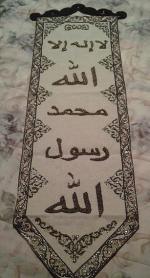 لا إله إلا
الله
محمد
رسول
الله